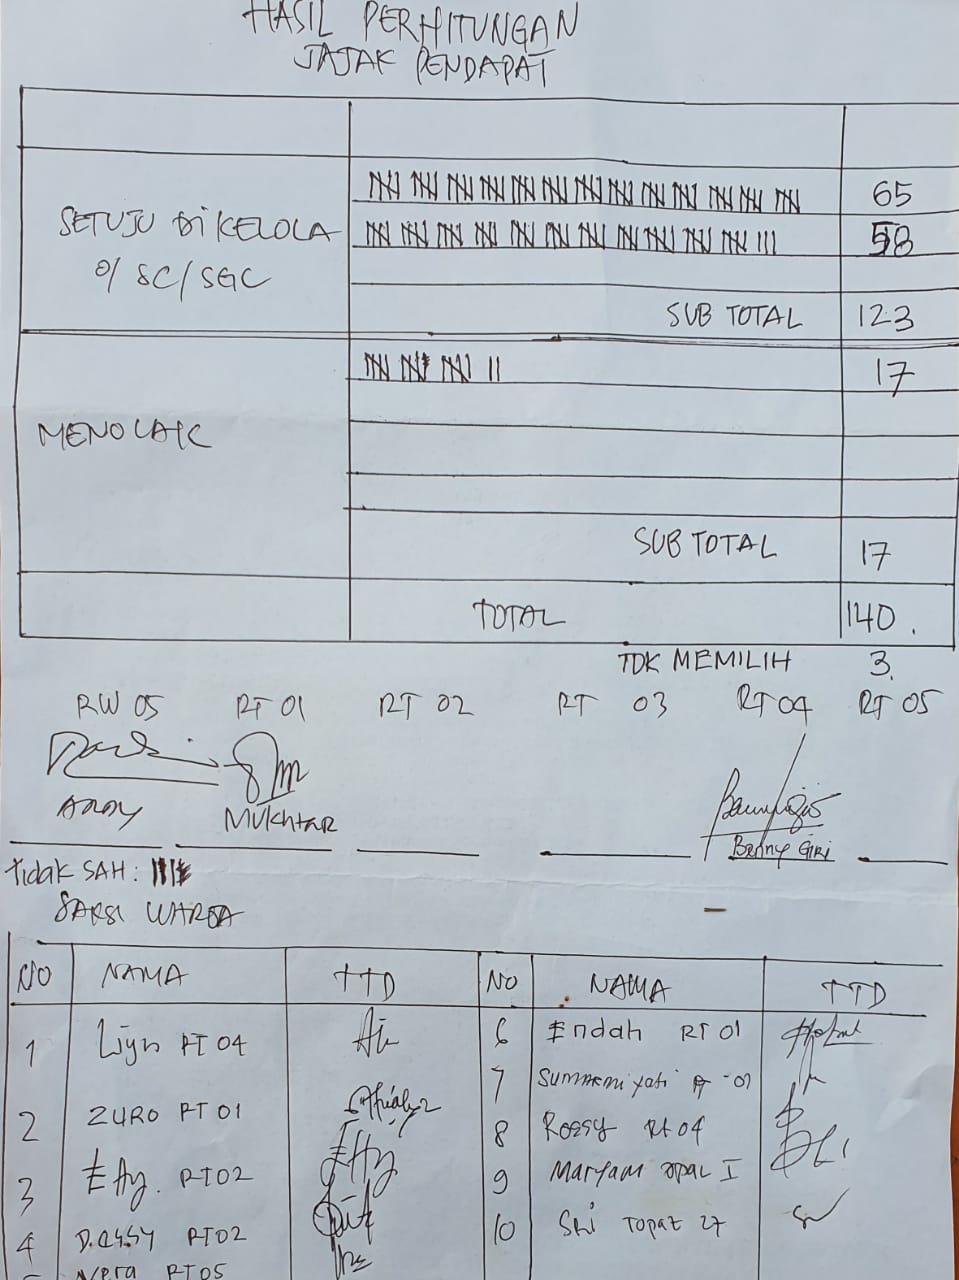 HASIL PERHITUNGAN
JAJAK PENDAPAT
65
SETUJU DIKELOLA
58
O/ SC/SGC
SUB TOTAL 123
17
MENOLAK
SUB TOTAL 17
TOTAL 140.
TDK MEMILIH 3.
RW 05 RT 01 RT 02 RT 03 RT 04 RT 05
MUKHTAR
Benny GIRI
Tidak SAH:
SAKSI WARGA
NO NAMA TTD NO NAMA TTD
1 RT 04 6 Endah RT 01
7
2 ZURO RT 01
8 Rossy Rt 04
3 Etty. RT02
9 Maryam opal I
4 RT02
10 Sri Topaz 27
RT05